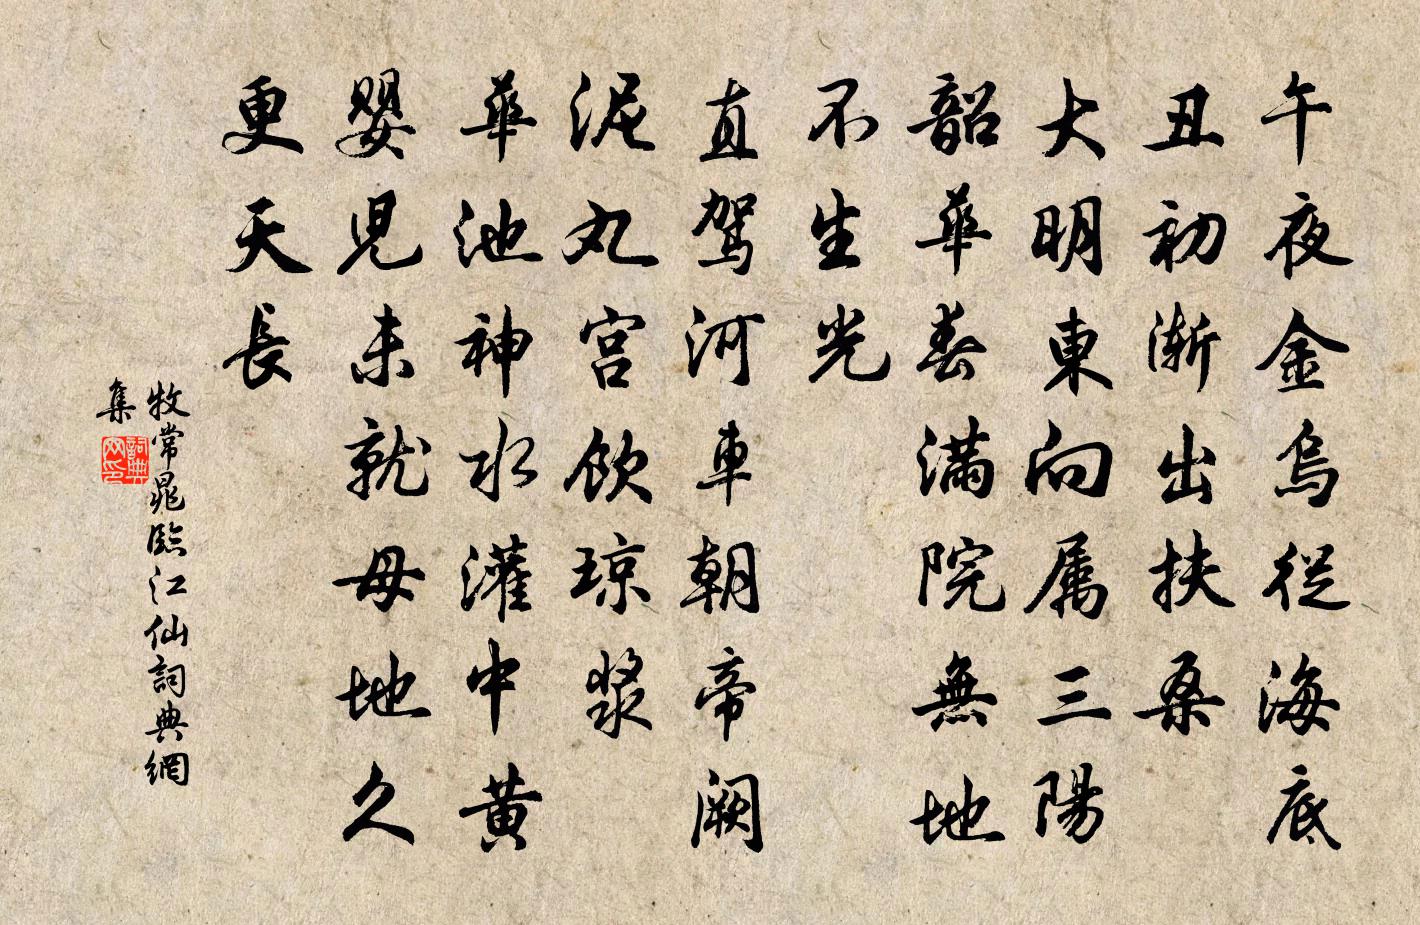 午夜金烏從海底
丑初漸出扶桑
大明東向属三陽
韶華春滿院無地
不生光
直駕河車朝帝闕
泥丸宮飲琼漿
華池神水灌中黃
嬰兒未就母地久
更天長
牧常晁臨江仙詞典網
集
詞典網印